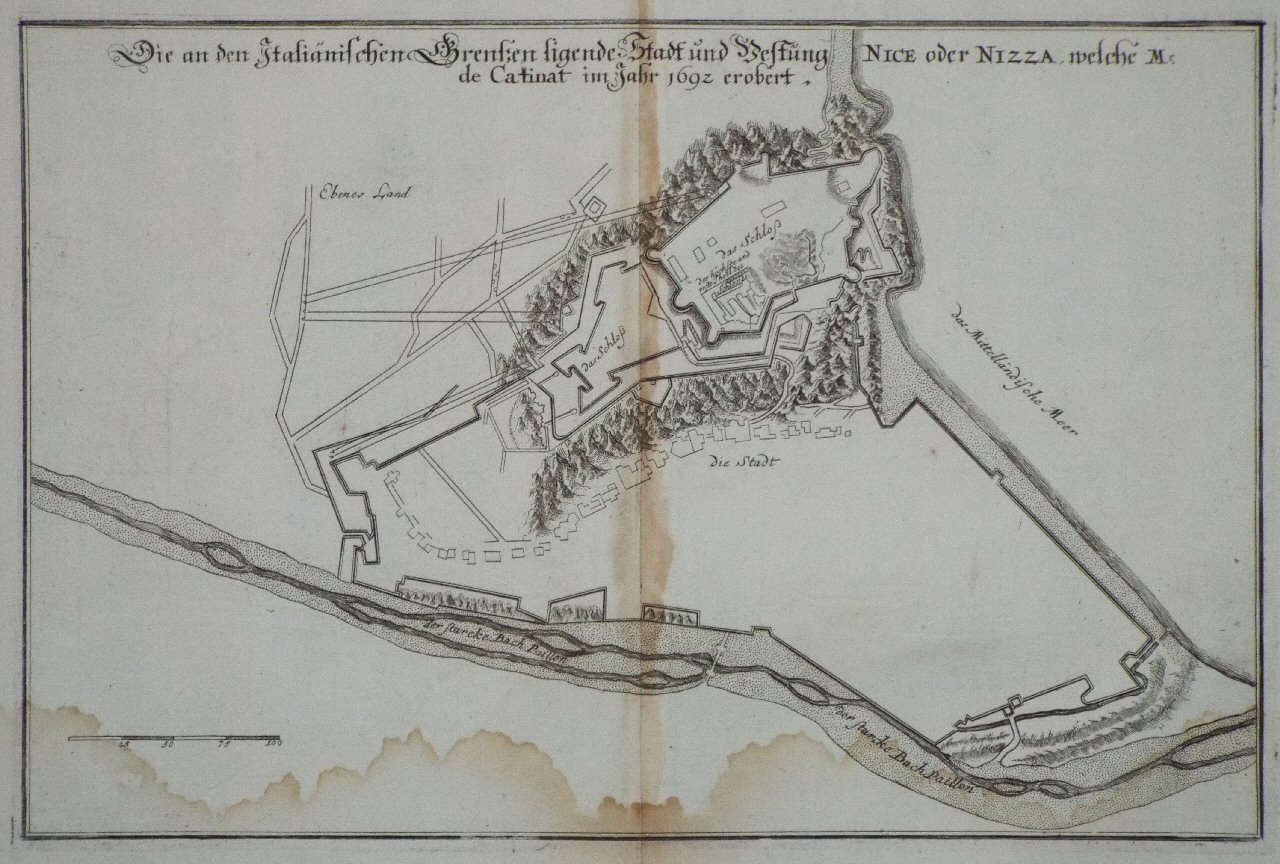 Die an den Italiänischen Grentzen ligende Stadt und Vestung NICE oder NIZZA, welche Mr.
de Catinat im Jahr 1692 erobert.
Ebenes Land.
das Schloß
das Schloß
das Mittelländische Meer
die Stadt
der starcke Bach Paillon
der starcke Bach Paillon
25 50 75 100